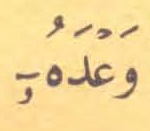 وَعْدَهُۥٓ